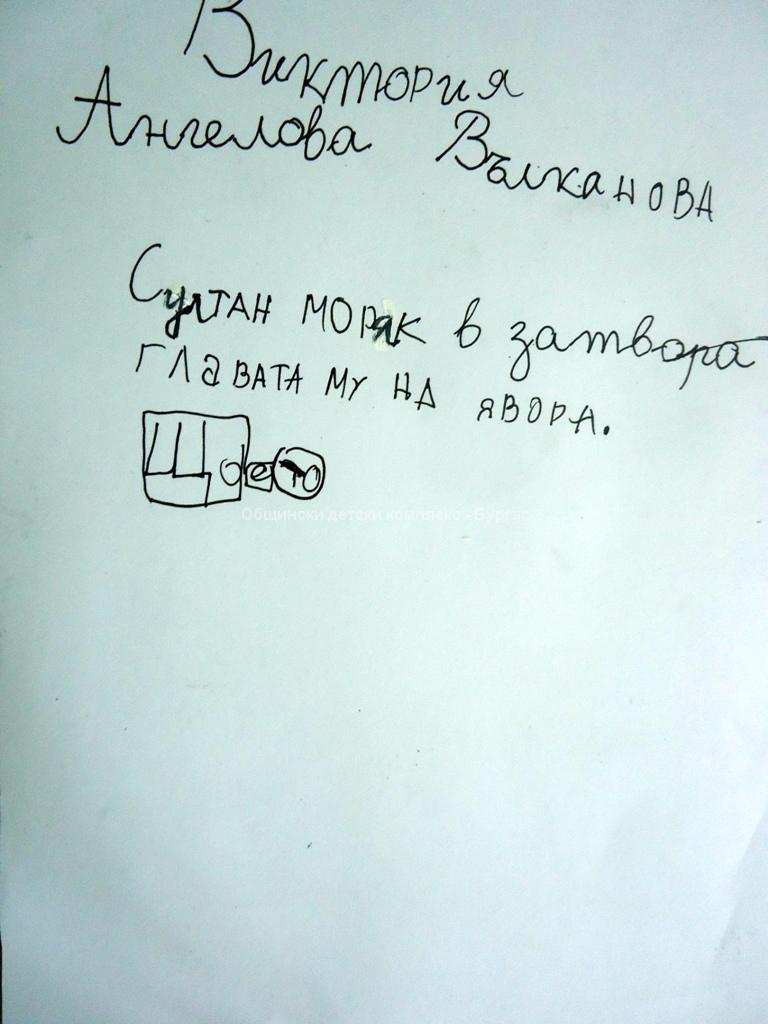 Виктория
Ангелова Вълканова
Султан моряк в затвора
ГЛАВАТА МУ НА ЯВОРА.
Щ о е ю
Общински детски комплекс - Бургас